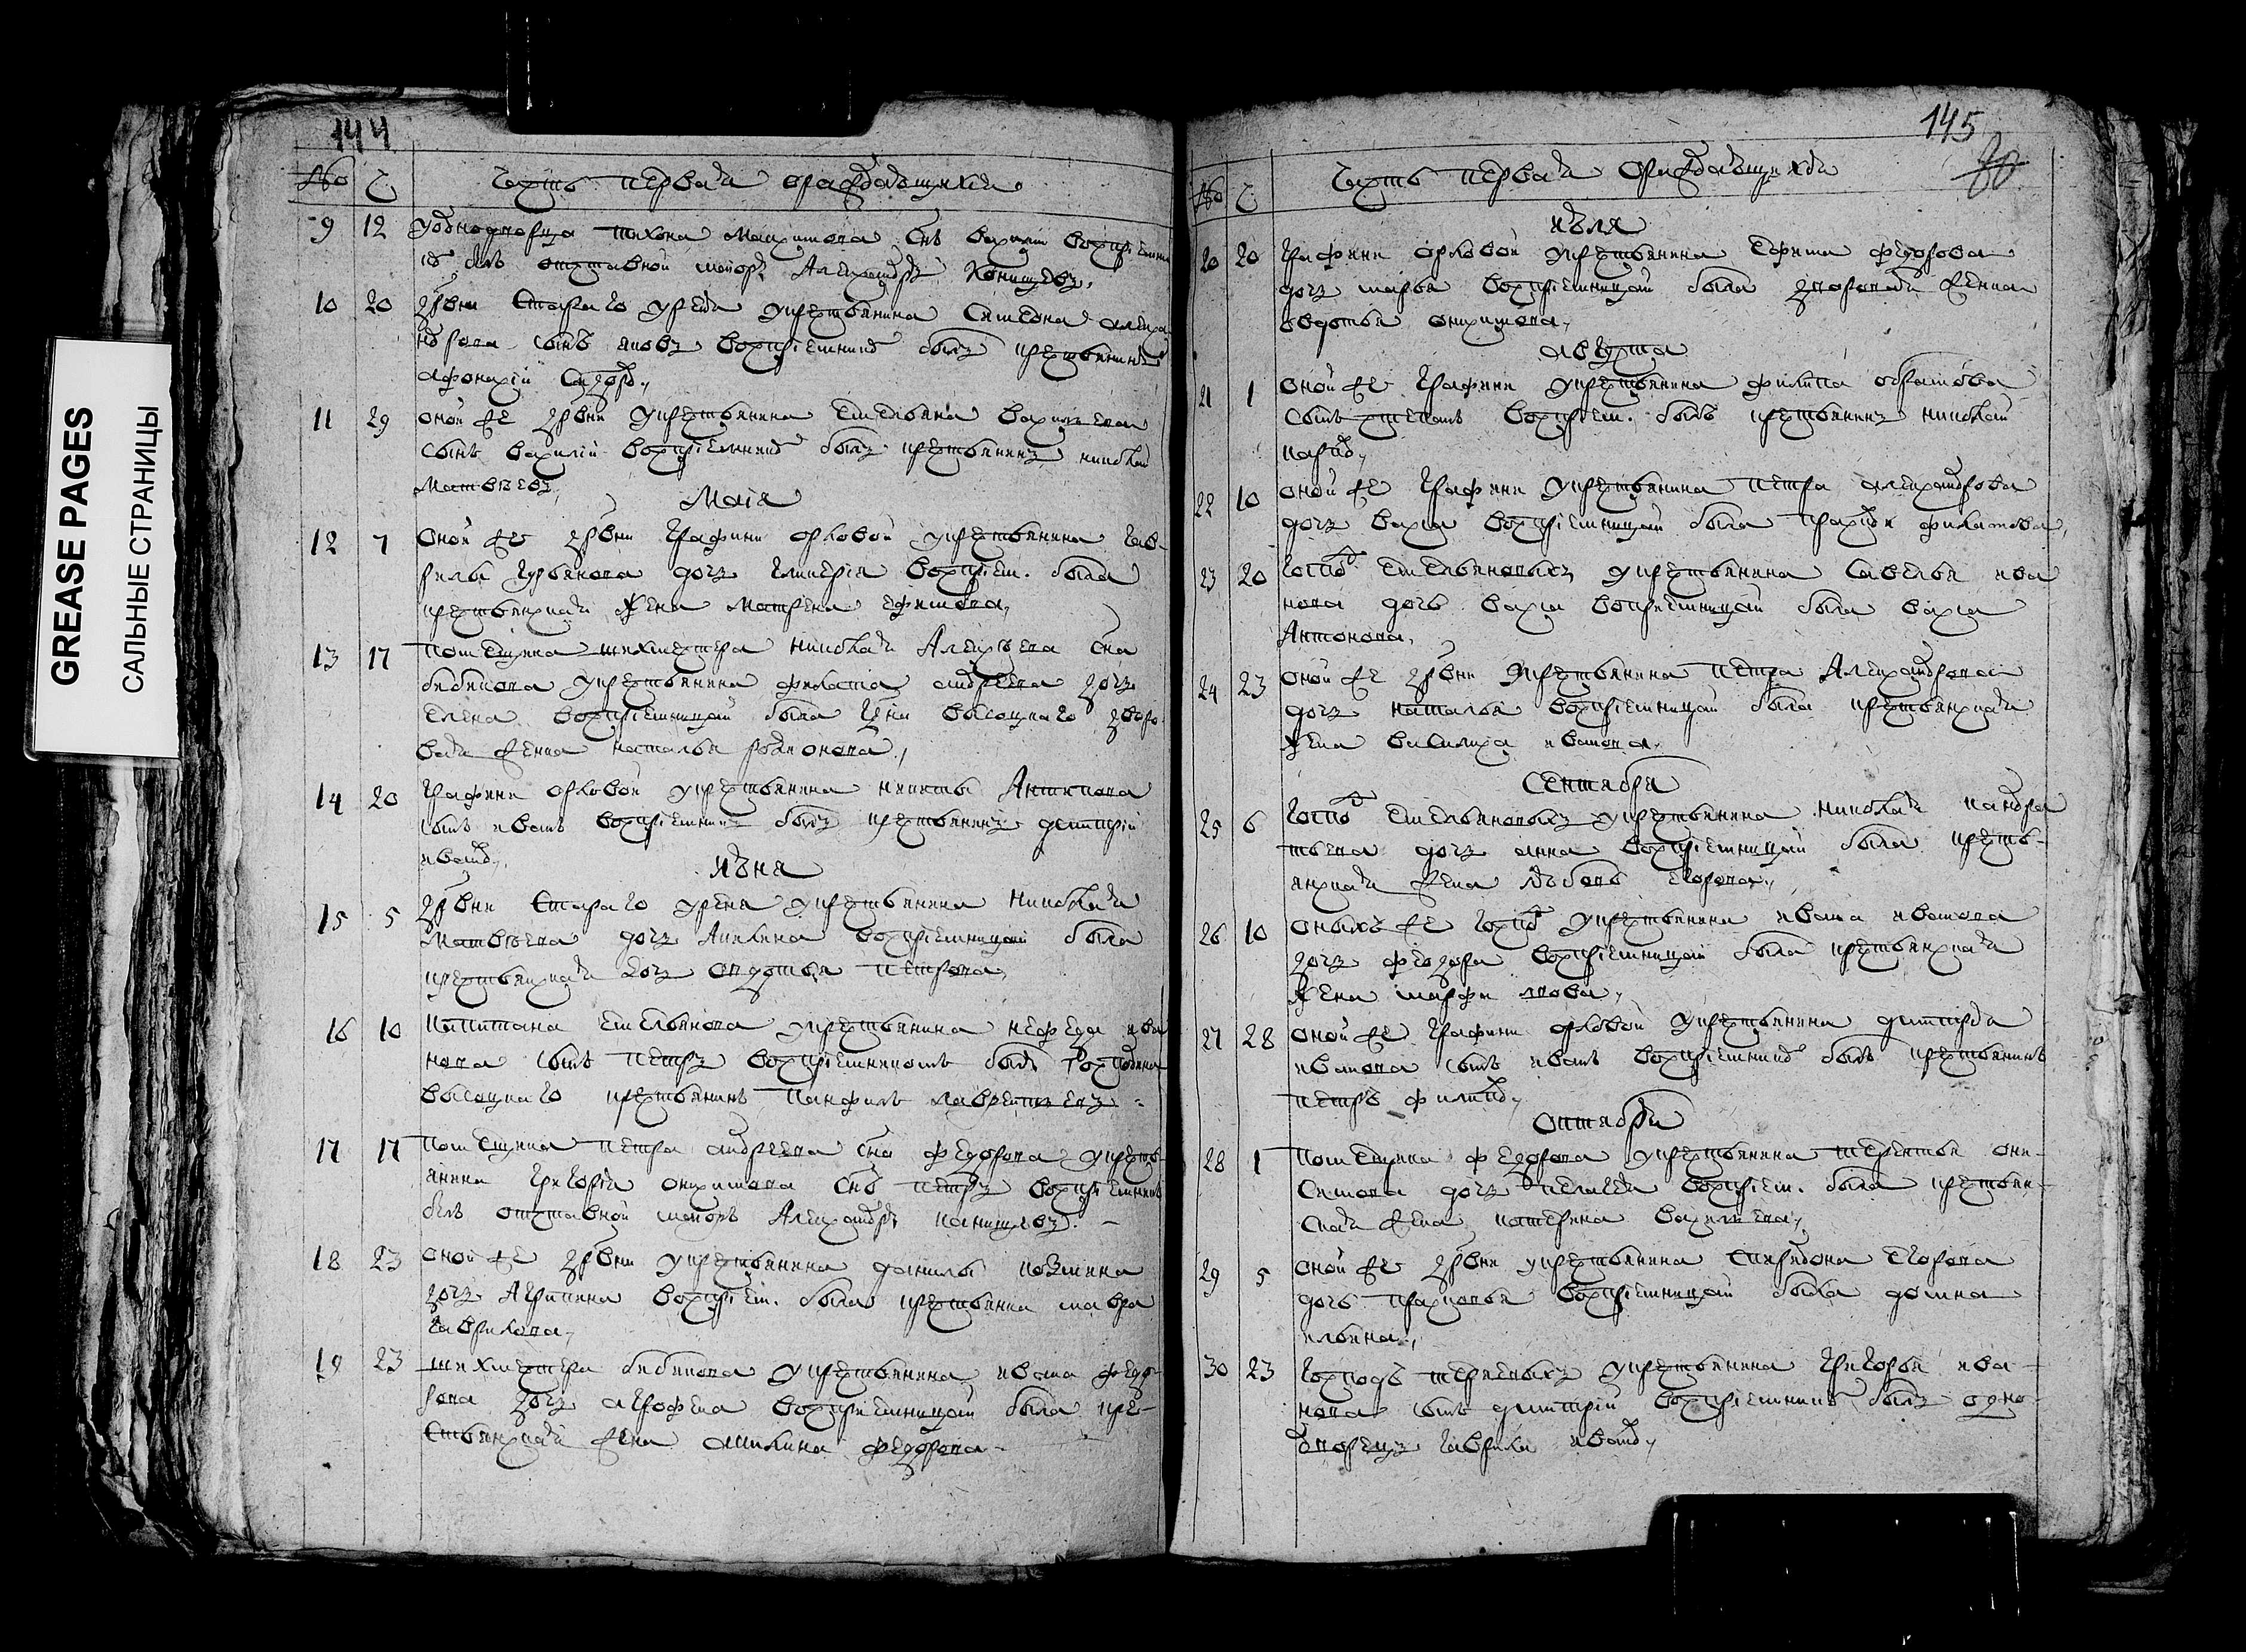 GREASE PAGES
САЛЬНЫЕ СТРАНИЦЫ
144
№ Ч
Часть первая о раждающихся
9 12 У однодворца Максимова снъ Василий восприемни
къ былъ отставной маиоръ Александръ
10 20 дрвни Стараго Урея у крестьянина Симеона Алекса
ндрова сынъ Яковъ восприемникъ былъ крестьянинъ
Афонасий
11 29 оной же дрвни у крестьянина Емельяна Васильева
сынъ Василий восприемникъ былъ крестьянинъ Николай
Матвеевъ
Маія
12 7 Оной же дрвни графини Орловой у крестьянина Гав-
рилы Гурьянова дочь Гликерія восприем. была
крестьянская жена Матрена Ефимова
13 17 Помещика Николая Алексеева сна
Бибикова у крестьянина Филата Андреева дочь
Елена восприемницей была Высоцкаго дворо
вая женка Наталья Родионова
14 20 Графини Орловой у крестьянина Никиты Антипова
сынъ Иванъ восприемникъ былъ крестьянинъ Дмитрий
Иванов
Июня
15 5 дрвни Стараго Урея у крестьянина Николая
Матвеева дочь Акилина восприемницей была
крестьянская дочь Авдотья Петрова
16 10 Капитана Емельянова у крестьянина Нефеда Ива
нова сынъ Петръ восприемникомъ былъ господина
Высоцкаго крестьянинъ Панфилъ Лаврентьевъ
17 17 Помещика Петра Андреева сна Федорова у крестъ
янина Григорія Анисимова снъ Петръ восприемникъ
былъ отставной маиоръ Александръ
18 23 Оной же дрвни у крестьянина Данилы Козмина
дочь Агрипина восприем. была крестьянка Мавра
Гаврилова
19 23 Бибикова у крестьянина Ивана Федо-
рова дочь Агрофена восприемницей была кре-
стьянская жена Акилина Федорова
145
80
№ Ч
Часть первая о раждающихся
июля
20 20 Графини Орловой у крестьянина Ефима Федорова
дочь Марья восприемницей была дворовая женка
Овдотья Анисимова
августа
21 1 Оной же графини у крестьянина Филипа Абрамова
сынъ Степанъ восприем. былъ крестьянинъ Николай
22 10 Оной же графини у крестьянина Петра Александрова
дочь Васса восприемницей была Филатова
23 20 Госпд Емельяновыхъ у крестьянина Савелья Ива
нова дочь Васса восприемницей была Васса
Антонова
24 23 Оной же дрвни у крестьянина Петра Александрова
дочь Наталья восприемницей была крестьянская
жена Василиса Иванова
Сентября
25 6 Госпд Емельяновыхъ у крестьянина Николая Кандра
тьева дочь Анна восприемницей была кресть-
янская жена Любовь Егорова
26 10 Оныхъ же госпд у крестьянина Ивана Иванова
дочь Феодора восприемницей была крестьянская
жена Марфа
27 28 Оной же графини Орловой у крестьянина Дмитрія
Иванова сынъ Иванъ восприемникъ былъ крестьянинъ
Петръ
Октября
28 1 Помещика Федорова у крестьянина Терентья Они-
симова дочь Пелагея восприем. была крестьян-
ская жена Катерина Васильева
29 5 Оной же дрвни у крестьянина Спиридона Егорова
дочь Прасковья восприемницей была Домна
Ильина
30 23 Господъ у крестьянина Григорья Ива
нова сынъ Дмитрий восприемникъ былъ одно-
дворецъ Гаврила Иванов